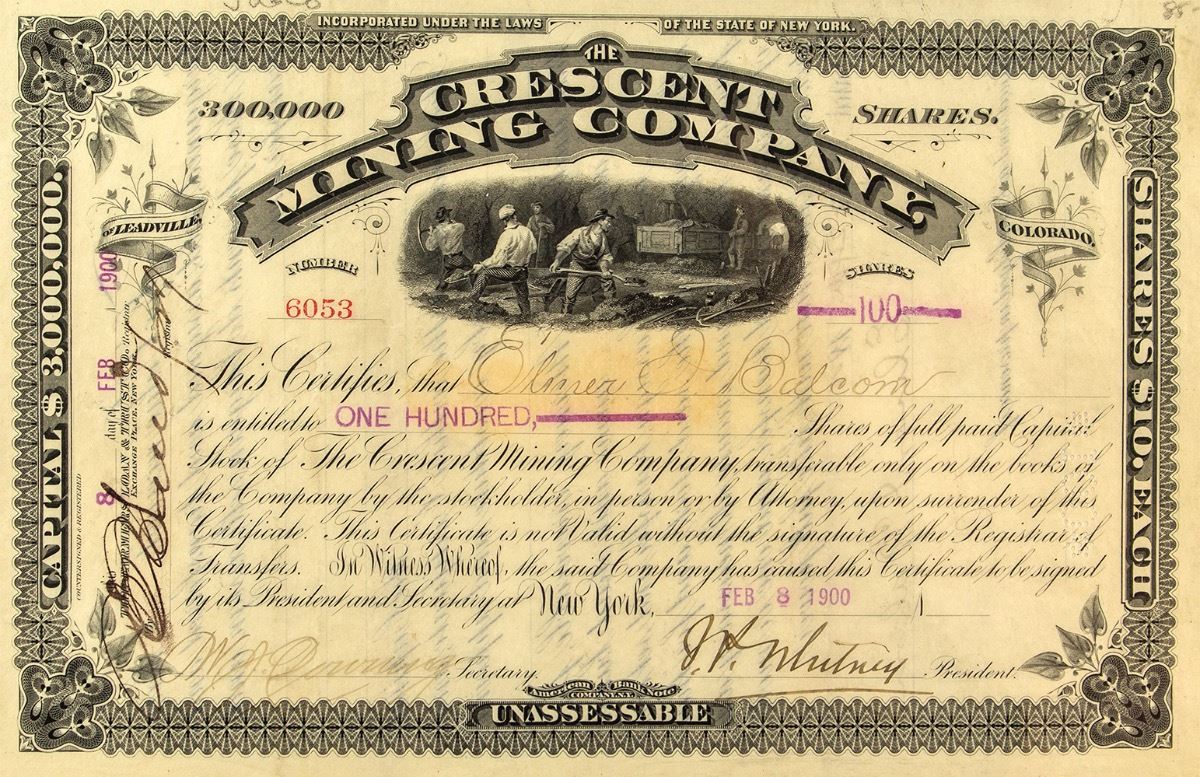 INCORPORATED UNDER THE LAWS OF THE STATE OF NEW YORK.
THE
CRESCENT
MINING COMPANY
300,000 SHARES.
OF LEADVILLE, COLORADO.
NUMBER SHARES
6053 100
This Certifies, that Elmer D. Balcom
is entitled to ONE HUNDRED, Shares of full paid Capital
Stock of The Crescent Mining Company, transferable only on the books of
the Company by the stockholder, in person or by Attorney, upon surrender of this
Certificate. This Certificate is not Valid without the signature of the Registrar of
Transfers. In Witness Whereof, the said Company has caused this Certificate to be signed
by its President and Secretary at New York, FEB 8 1900 1
Secretary. J. P. Whitney President.
American Bank Note
COMPANY, N.Y.
UNASSESSABLE
CAPITAL $3,000,000.
COUNTERSIGNED & REGISTERED
8 day of FEB 1900
LOAN & TRUST CO. Registrar
EXCHANGE PLACE, NEW YORK.
SHARES $10. EACH